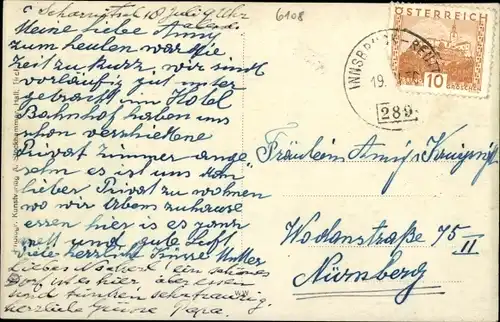 Scharnitz 18 Juli 9 Uhr
abends
Meine liebe Amy
zum heulen war die
Zeit zu kurz, wir sind
vorläufig gut unter
gebracht im Hotel
Bahnhof haben uns
schon verschiedene
Privat zimmer ange
sehn es ist uns
lieber Privat zu wohnen
wo wir Abens zuhause
essen hier is es ganz
nett und gute Luft
viele herzliche Grüsse Mutter
Liebes ein schönes
Dorf ist es hier aber essen
und trinken sehr traurig,
herzliche Grüsse Papa.
6108
ÖSTERREICH
10
GROSCHEN
INNSBRUCK
19.
289
Fräulein Amy
Wodanstraße 75
II
Nürnberg